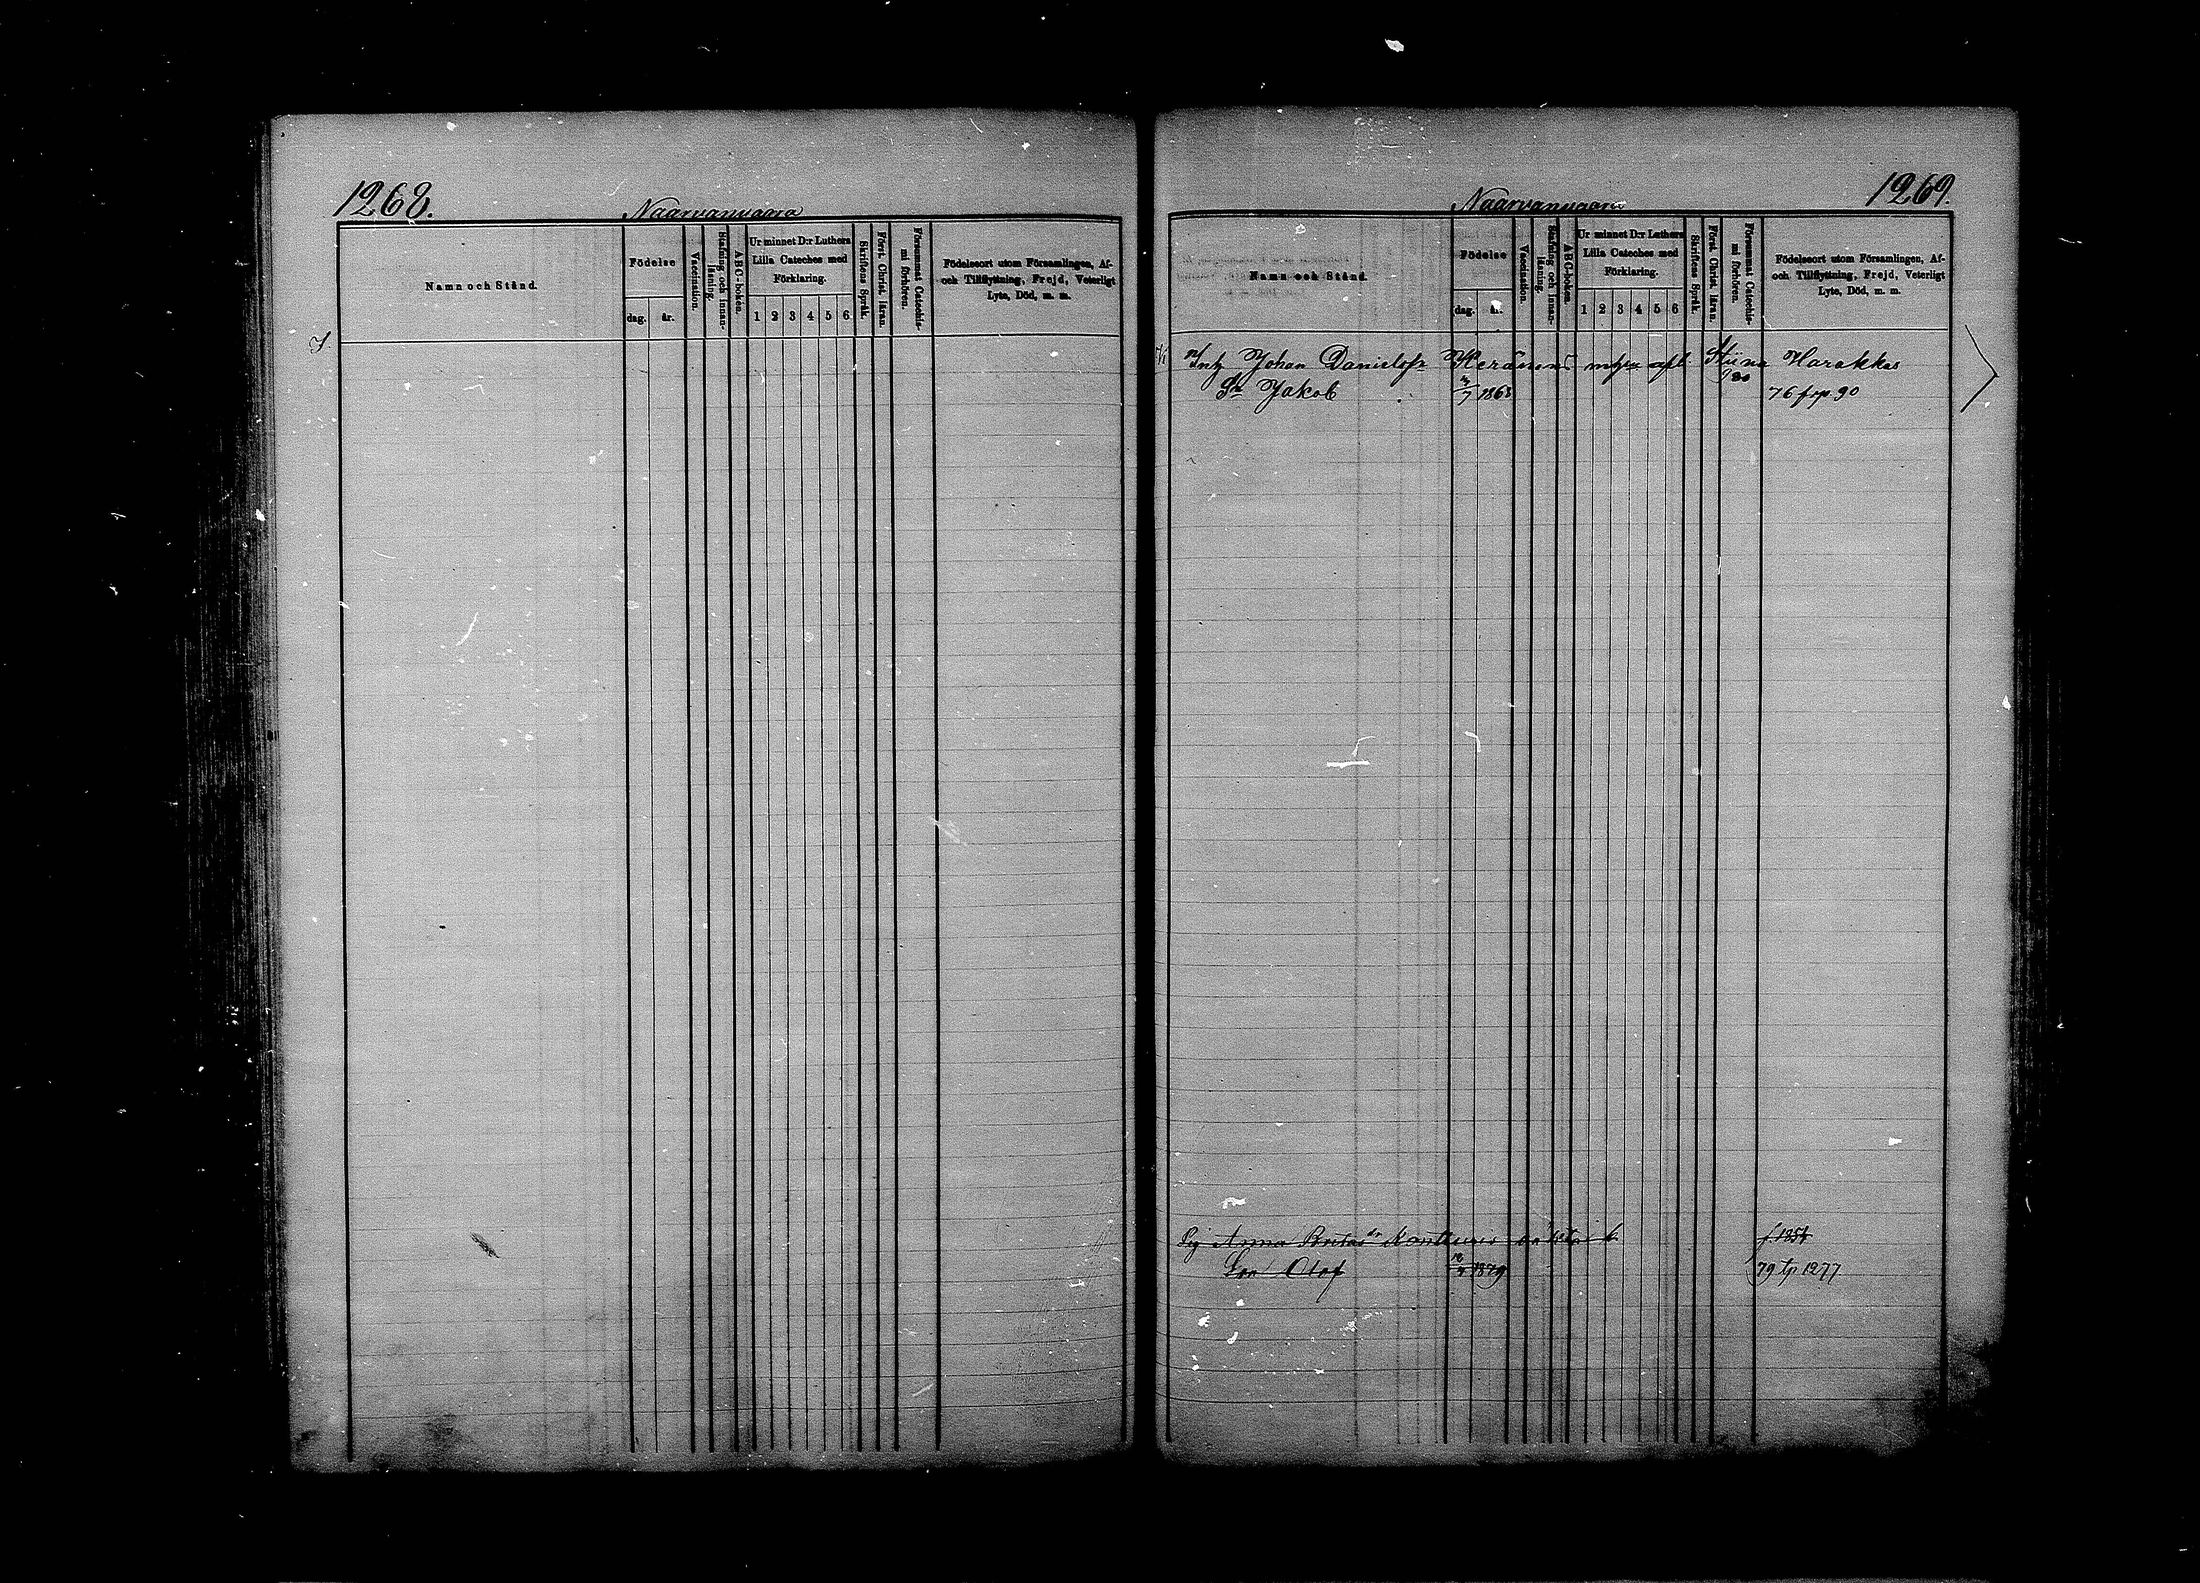 1268.
Naarvanvaara
Namn och Stånd.
Födelse
dag. år.
Vaccination.
Stafning och innan-
läsning.
ABC-boken.
Ur minnet D:r Luthers
Lilla Cateches med
Förklaring.
1 2 3 4 5 6
Skriftens Språk.
Först. Christ. läran.
Försummat Catechis-
mi förhören.
Födelseort utom Församlingen, Af-
och Tillflyttning, Frejd, Veterligt
Lyte, Död, m. m.
1269.
Naarvanvaara
Namn och Stånd.
Födelse
dag. år.
Vaccination.
Stafning och innan-
läsning.
ABC-boken.
Ur minnet D:r Luthers
Lilla Cateches med
Förklaring.
1 2 3 4 5 6
Skriftens Språk.
Först. Christ. läran.
Försummat Catechis-
mi förhören.
Födelseort utom Församlingen, Af-
och Tillflyttning, Frejd, Veterligt
Lyte, Död, m. m.
Inh Johan Danielsn Keränens Stina Harakkas
Sn Jakob 1868 76 frp. 90
Anna Britas f. 1854
Son Olof 1879 79 tp 1277